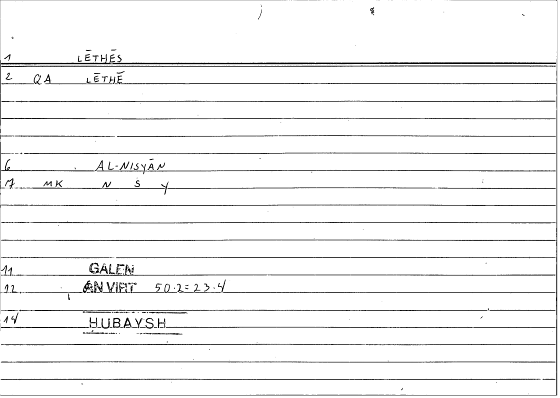 1 LĒTHĒS
2 QA LĒTHĒ
6 AL-NISYĀN
7 MK N S Y
11 GALEN
12 AN VIRT 50.2=23.4
14 HUBAYSH